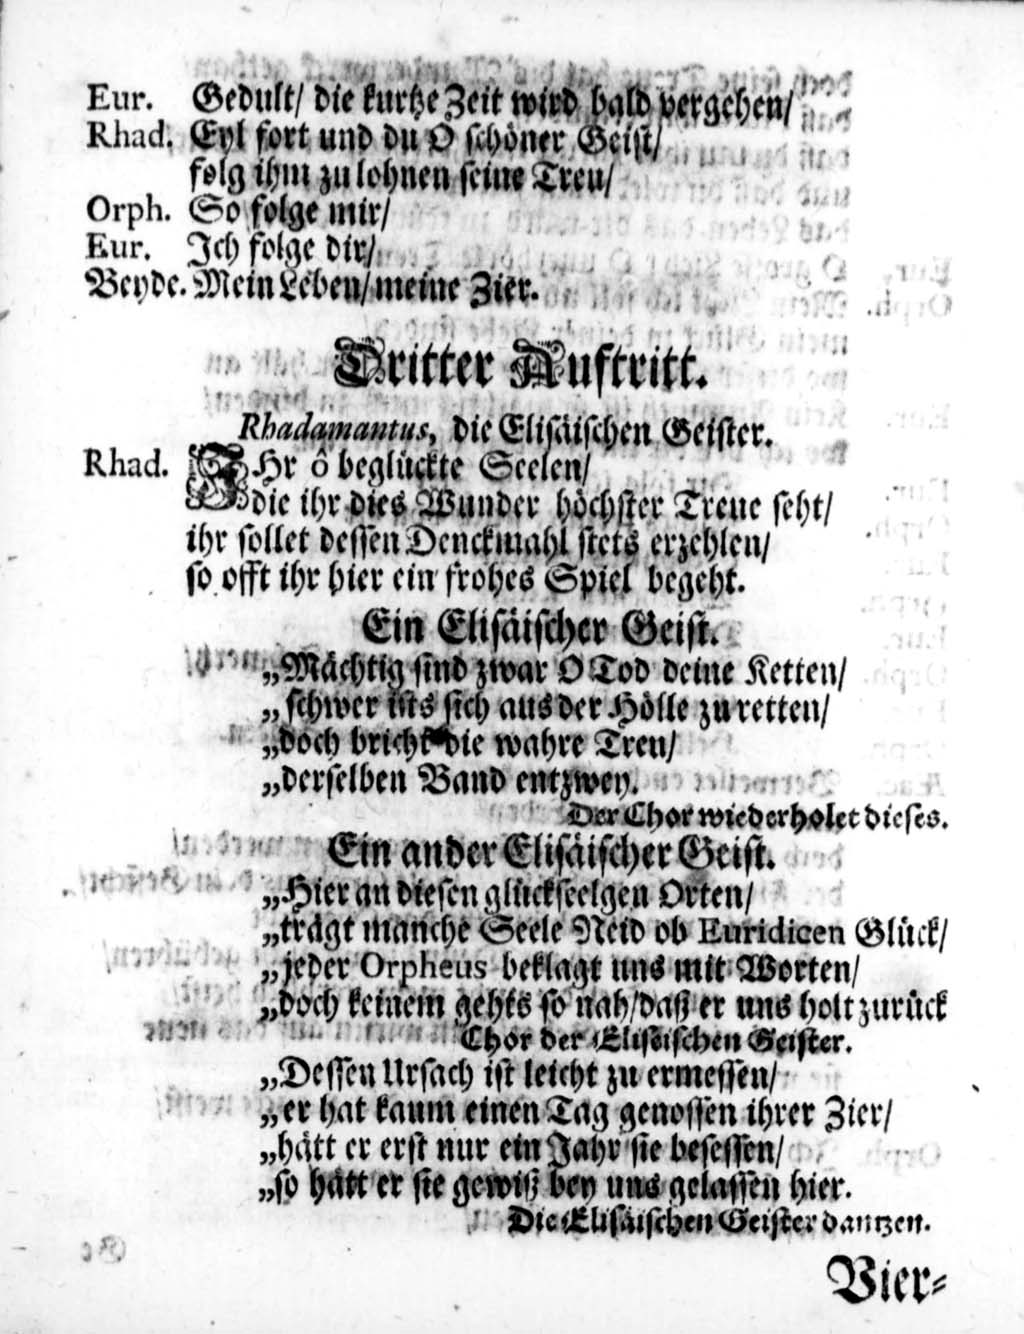 Eur. Gedult/ die kurtze Zeit wird bald vergehen/
Rhad. Eyl fort und du O schöner Geist/
folg ihm zu lohnen seine Treu/
Orph. So folge mir/
Eur. Ich folge dir/
Beyde. Mein Leben/ meine Zier.
Dritter Auftritt.
Rhadamantus, die Elisäischen Geister.
Rhad. IHr ô beglückte Seelen/
die ihr dies Wunder höchster Treue seht/
ihr sollet dessen Denckmahl stets erzehlen/
so offt ihr hier ein frohes Spiel begeht.
Ein Elisäischer Geist.
„Mächtig sind zwar O Tod deine Ketten/
„schwer ists sich aus der Hölle zu retten/
„doch bricht die wahre Treu/
„derselben Band entzwey.
Der Chor wiederholet dieses.
Ein ander Elisäischer Geist.
„Hier an diesen glückseelgen Orten/
„trägt manche Seele Neid ob Euridicen Glück/
„jeder Orpheus beklagt uns mit Worten/
„doch keinem gehts so nah/ daß er uns holt zurück
Chor der Elisäischen Geister.
„Dessen Ursach ist leicht zu ermessen/
„er hat kaum einen Tag genossen ihrer Zier/
„hätt er erst nur ein Jahr sie besessen/
„so hätt er sie gewiß bey uns gelassen hier.
Die Elisäischen Geister dantzen.
Vier-